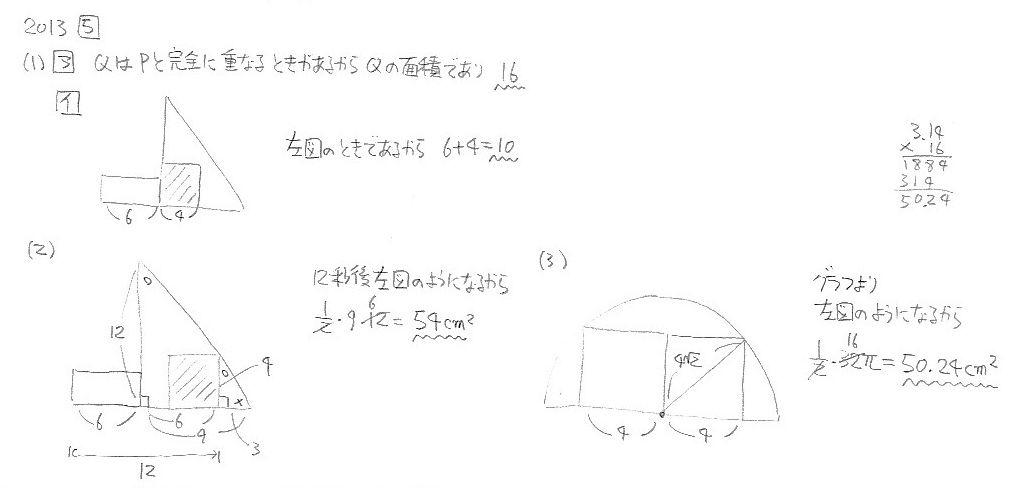 2013 5
(1) ③ QはPと完全に重なるときがあるからQの面積であり 16
イ
左図のときであるから 6+4=10
6 4
3.14
× 16
1884
314
50.24
(2)
12秒後左図のようになるから
1/2・9・12= 54cm²
6
12
4
6 6 ×
9 3
12
(3)
グラフより
左図のようになるから
1/2・32π= 50.24cm²
16
4√2
4 4